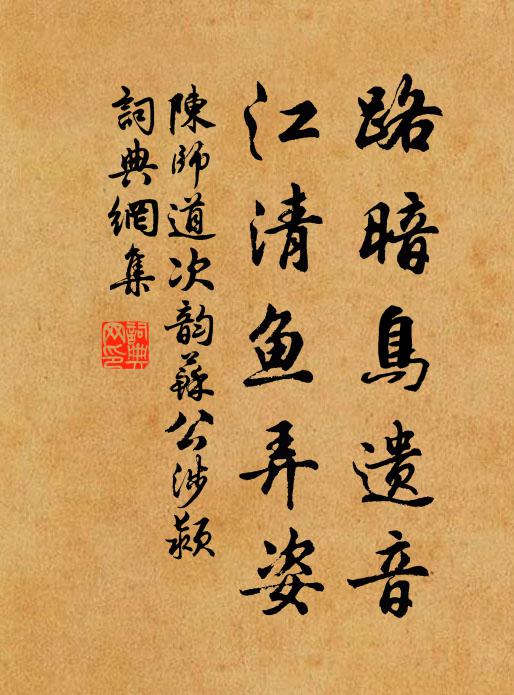 路暗鳥遺音
江清鱼弄姿
陳師道次韵蘇公涉颍
詞典網集
詞典网印